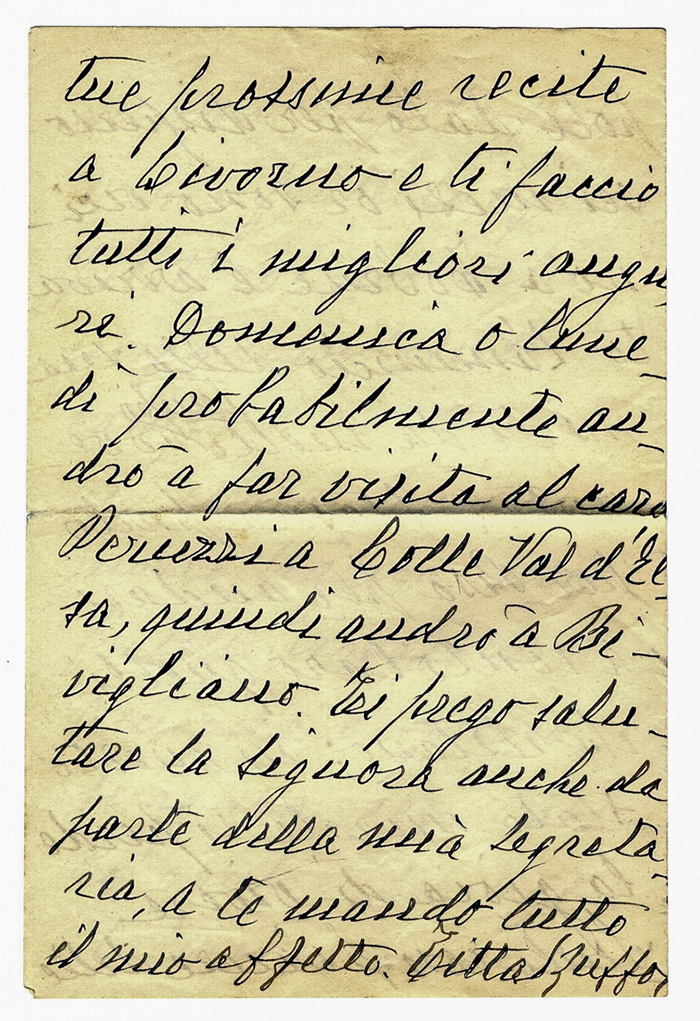 tue prossime recite
a Livorno e ti faccio
tutti i migliori augu
ri. Domenica o lune-
dì probabilmente an-
drò a far visita al caro
Peruzzi a Colle Val d'El
sa, quindi andrò a Bi-
vigliano. Ti prego salu-
tare la Signora anche da
parte della mia Segreta-
ria, a te mando tutto
il mio affetto. Titta Ruffo.